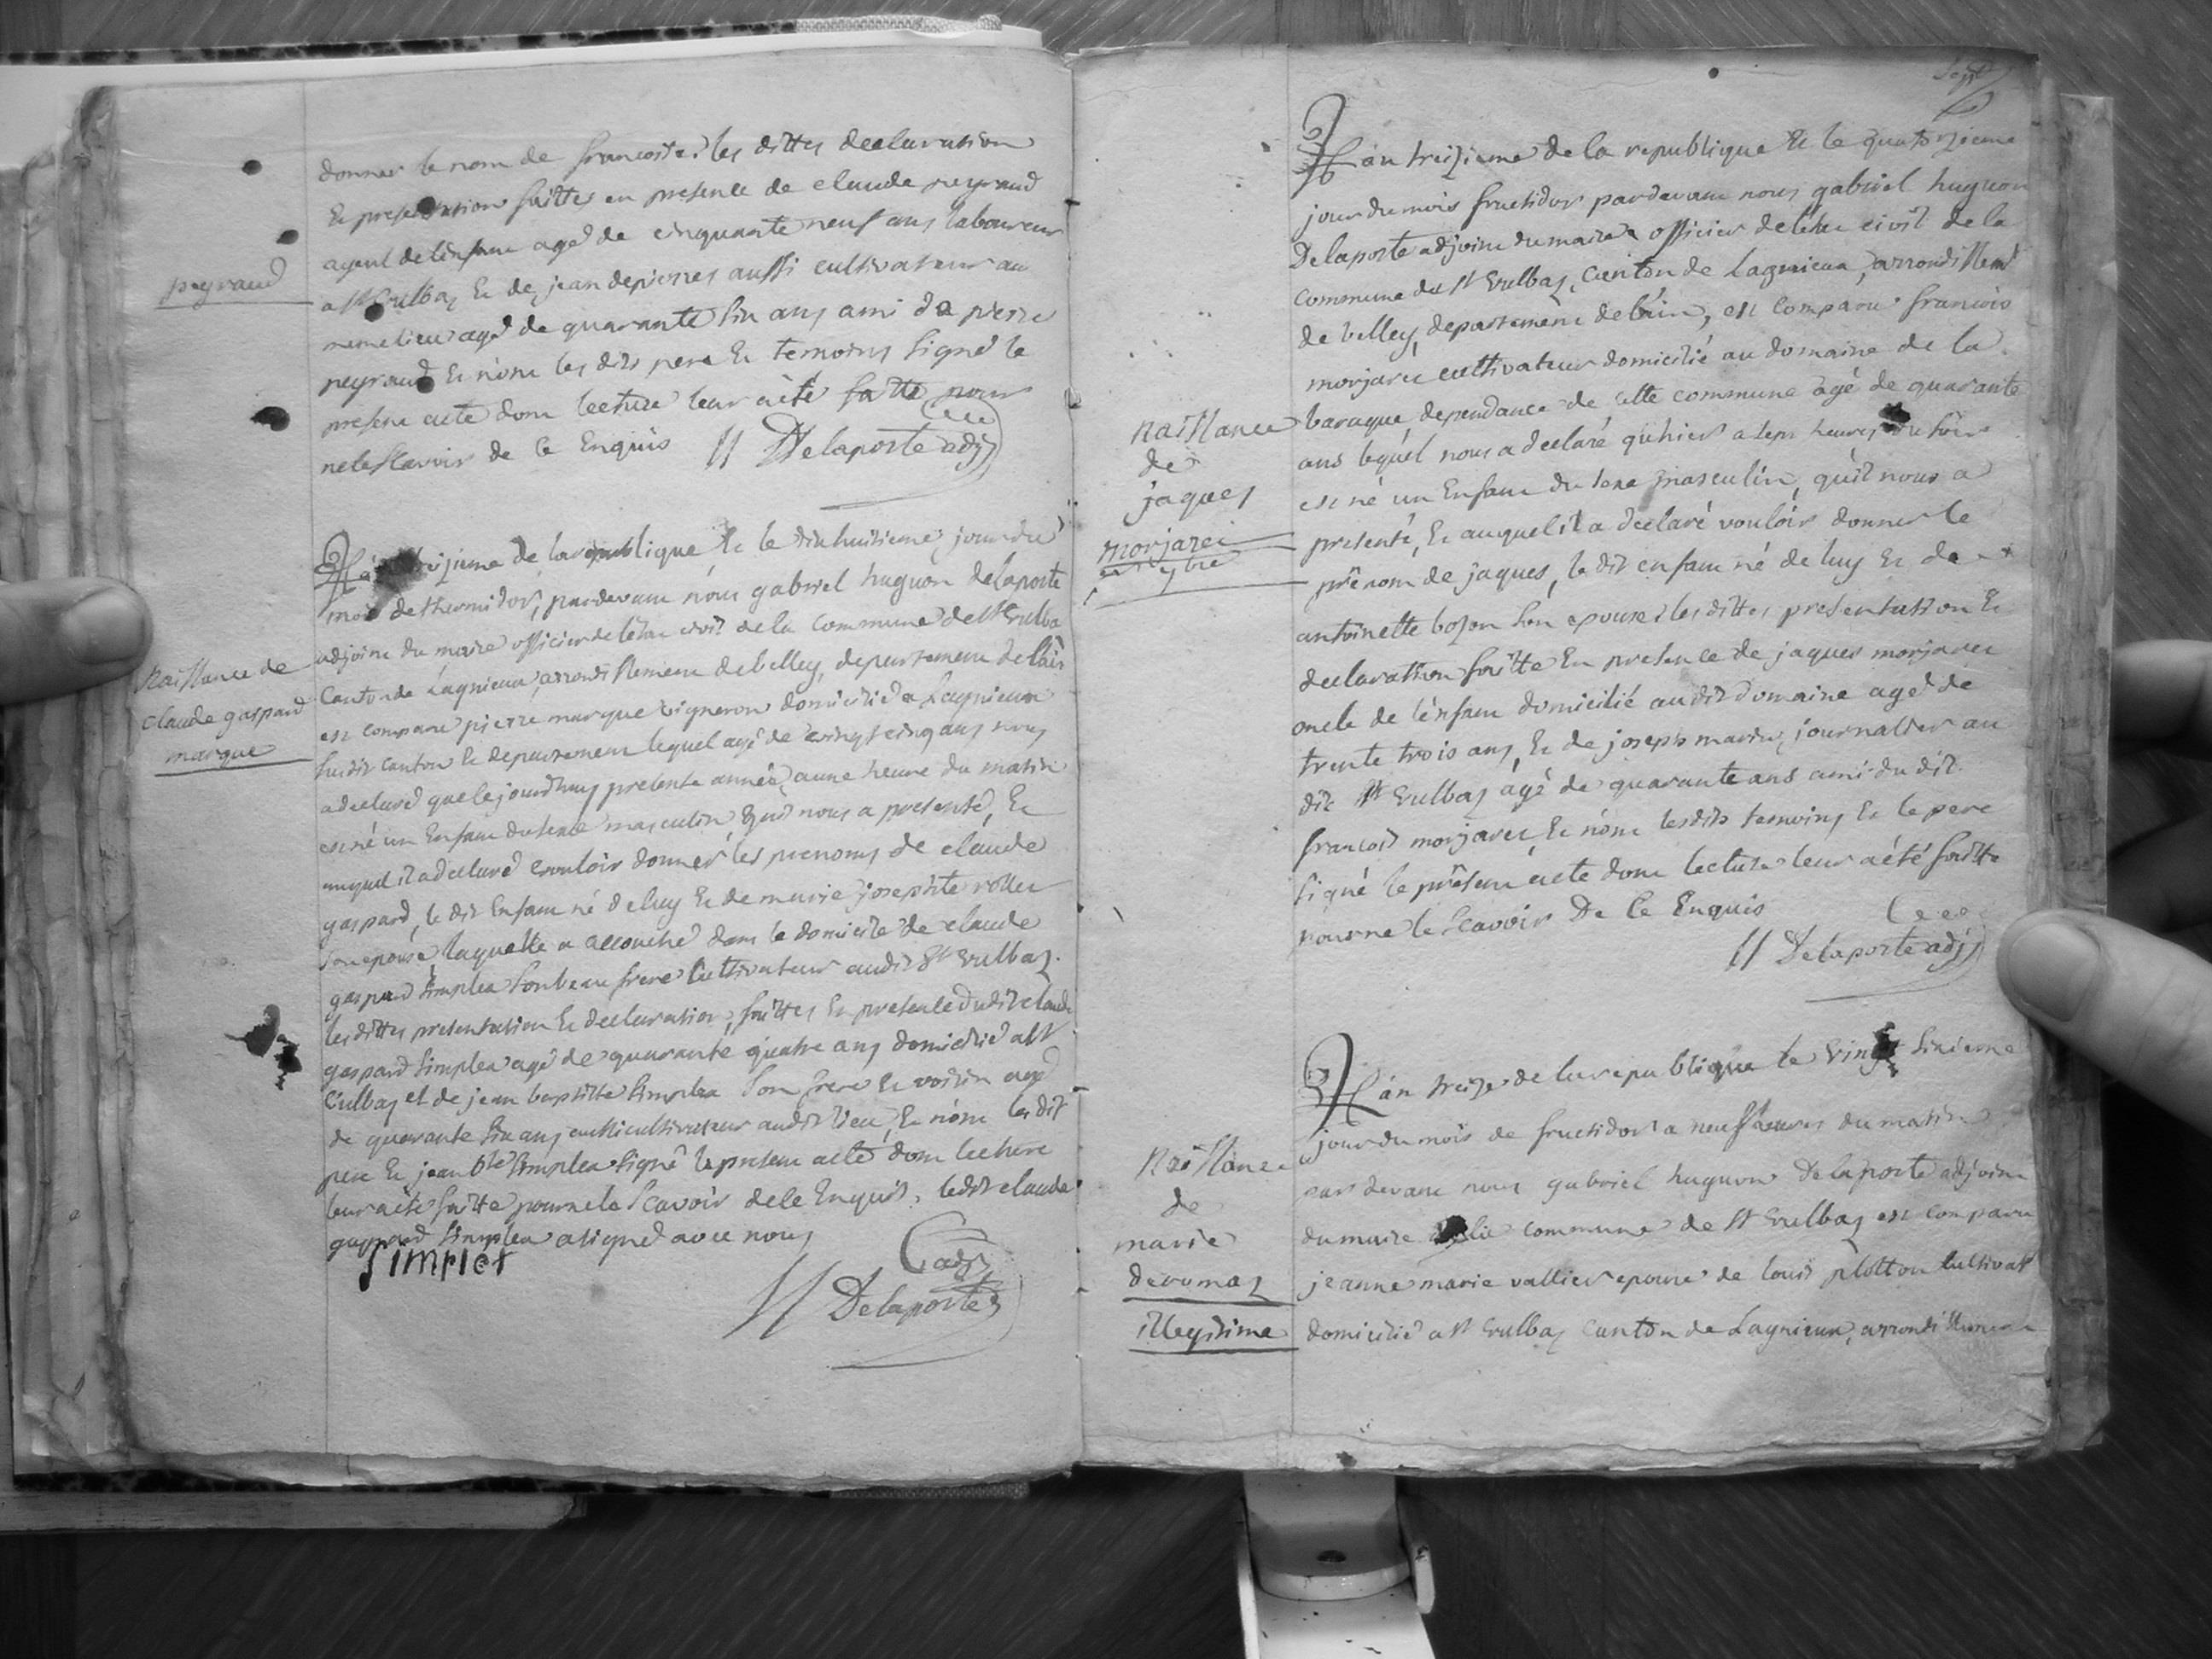 peyraud
donner le nom de francoise. les dittes declaration
Et presentation faittes en presence de claude peyraud
ayeul de l'enfant agé de cinquante neuf ans laboureur
a St Vulbas Et de jean depierres aussi cultivateur au
meme lieu agé de quarante six ans ami de pierre
peyraud Et n'ont les dits pere Et temoins signé le
present acte dont lecture leur a été faitte pour
ne le scavoir de ce Enquis
Delaporte adj
Naissance de
claude gaspard
marque
L'an treizieme de la republique Et le dix huitieme jour du
mois de thermidor, pardevant nous gabriel hugnon delaporte
adjoint du maire officier de l'état civil de la commune de St Vulba
Canton de Lagnieux, arrondissement de belley, departement de l'ain
est comparu pierre marque vigneron domicilié a Lagnieux
susdit canton Et departement lequel agé de vingt cinq ans nous
a declaré que le jourd'huy presente année, a une heure du matin
est né un Enfant du sexe masculin, qu'il nous a presenté, Et
auquel il a declaré vouloir donner les prenoms de claude
gaspard, le dit Enfant né de luy Et de marie josephte
son epouse laquelle a accouché dans le domicile de claude
gaspard simplex son beau frere Cultivateur audit St Vulbas.
les dittes presentation Et declaration, faittes En presence dudit claude
gaspard simplex agé de quarante quatre ans domicilié a St
Vulbas et de jean baptiste simplex son frere Et voisin agé
de quarante six ans aussi cultivateur audit lieu, Et n'ont les dit
pere Et jean bte simplex signé le present acte dont lecture
leur a été faitte pour ne le Scavoir de ce Enquis, ledit claude
gaspard simplex a signé avec nous
Simplet
adj
Delaporte
Sept
naissance
de
jaques
morjaret
L'an treizieme de la republique Et le quatorzieme
jour du mois fructidor pardevant nous gabriel hugnon
Delaporte adjoint du maire officier de l'état civil de la
commune de St Vulbas, canton de Lagnieux, arrondissemt
de belley, departement de l'ain, est comparu francois
morjaret cultivateur domicilié au domaine de la
baraque, dependance de cette commune agé de quarante
ans lequel nous a declaré qu'hier a sept heures du soir
est né un Enfant du sexe masculin, qu'il nous a
presenté, Et auquel il a declaré vouloir donner le
prénom de jaques, le dit enfant né de luy Et de
antoinette bozon son epouse; les dittes presentation Et
declaration faitte En presence de jaques morjaret
oncle de l'enfant domicilié audit domaine agé de
trente trois ans, Et de joseph marin, journalier au
dit St Vulbas agé de quarante ans ami dudit
francois morjaret, Et n'ont lesdits temoins Et le pere
signé le présent acte dont lecture leur a été faitte
pour ne le scavoir De ce Enquis
Delaporte adj
Naissance
de
marie
derumaz
illegitime
L'an treize de la republique le vingt sixieme
jour du mois de fructidor a neuf heures du matin
par devant nous gabriel hugnon Delaporte adjoint
du maire de la commune de St Vulbas est comparu
jeanne marie vallier epouse de louis plotton cultivat
domicilié a St Vulbas Canton de Lagnieux, arrondissement